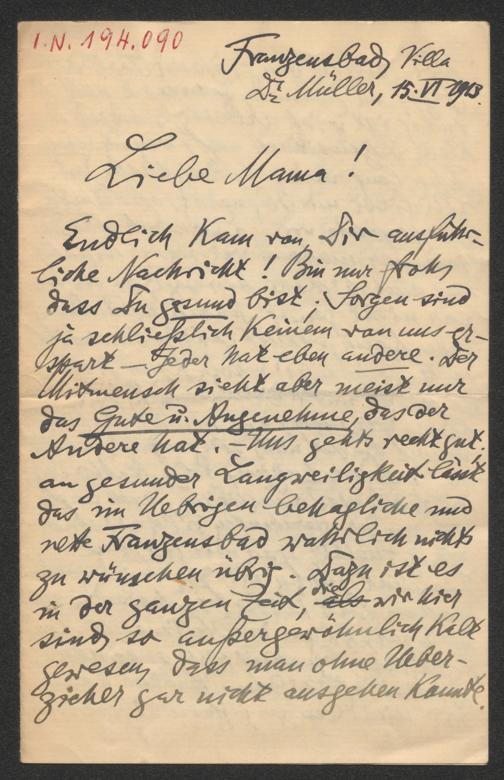 I.N. 194.090
Franzensbad, Villa
Dr. Müller, 15. VI 1913.
Liebe Mama!
Endlich kam von Dir ausführ-
liche Nachricht! Bin nur froh,
dass Du gesund bist; Sorgen sind
ja schließlich Keinem von uns er-
spart – Jeder hat eben andere. Der
Mitmensch sieht aber meist nur
das Gute u. Angenehme, das der
Andere hat. – Uns gehts recht gut,
an gesunder Langweiligkeit lässt
das im Uebrigen behagliche und
nette Franzensbad wahrlich nichts
zu wünschen übrig. Dazu ist es
in der ganzen Zeit, als die wir hier
sind, so außergewöhnlich kalt
gewesen, dass man ohne Ueber-
zieher gar nicht ausgehen konnte.